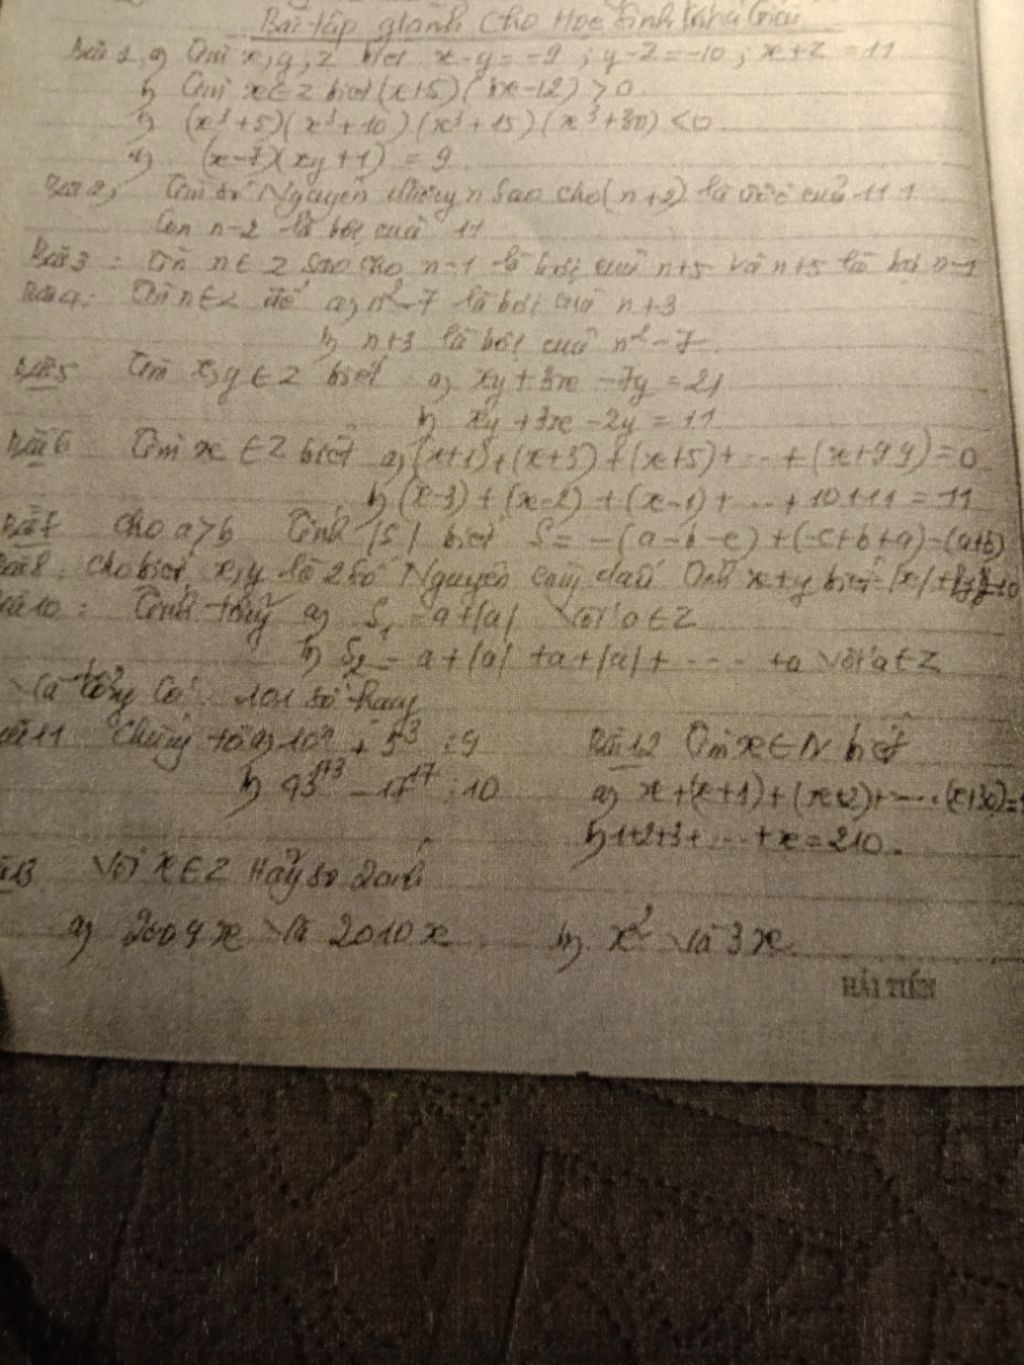 Bài tập giành cho Học sinh khá Giỏi
Bài 1 a) Tìm x, y, z biết x-y = -9 ; y-z = -10 ; x+z = 11
b) Tìm x ∈ Z biết (x+5)(3x-12) > 0
(x³+5)(x³+10)(x³+15)(x³+30) < 0
d) (x-7)(xy+1) = 9
Bài 2) Tìm số Nguyên dương n sao cho (n+2) là ước của 111
còn n-2 là bội của 11
Bài 3 : Tìm n ∈ Z sao cho n-1 là bội của n+5 và n+5 là bội n-1
Bài 4: Tìm n ∈ Z để a) n²-7 là bội của n+3
b) n+3 là bội của n²-7
Bài 5 Tìm x, y ∈ Z biết a) xy+3x-7y = 21
b) xy+3x-2y = 11
Bài 6 Tìm x ∈ Z biết a) (x+1)+(x+3)+(x+5)+...+(x+99) = 0
b) (x-3)+(x-2)+(x-1)+...+10+11 = 11
Bài 7 cho a>b Tính |S| biết S = -(a-b-c)+(-c+b+a)-(a+b)
Bài 8 : cho biết x, y là 2 số Nguyên cùng dấu Tính x+y biết |x|+|y|=10
Bài 10 : Tính tổng a) S₁ = a+|a| Với a ∈ Z
b) S₂ = a+|a|+a+|a|+ ... +a với a ∈ Z
và tổng có 101 số hạng
Bài 11 Chứng tỏ a) 10ⁿ + 5³ ⋮ 9
b) 43⁴³ - 17¹⁷ ⋮ 10
Bài 12 Tìm x ∈ N biết
a) x+(x+1)+(x+2)+...(x+30) =
b) 1+2+3+...+x = 210.
Với x ∈ Z Hãy so sánh
a) 2009x và 2010x b) x² và 3x.
HẢI TIẾN